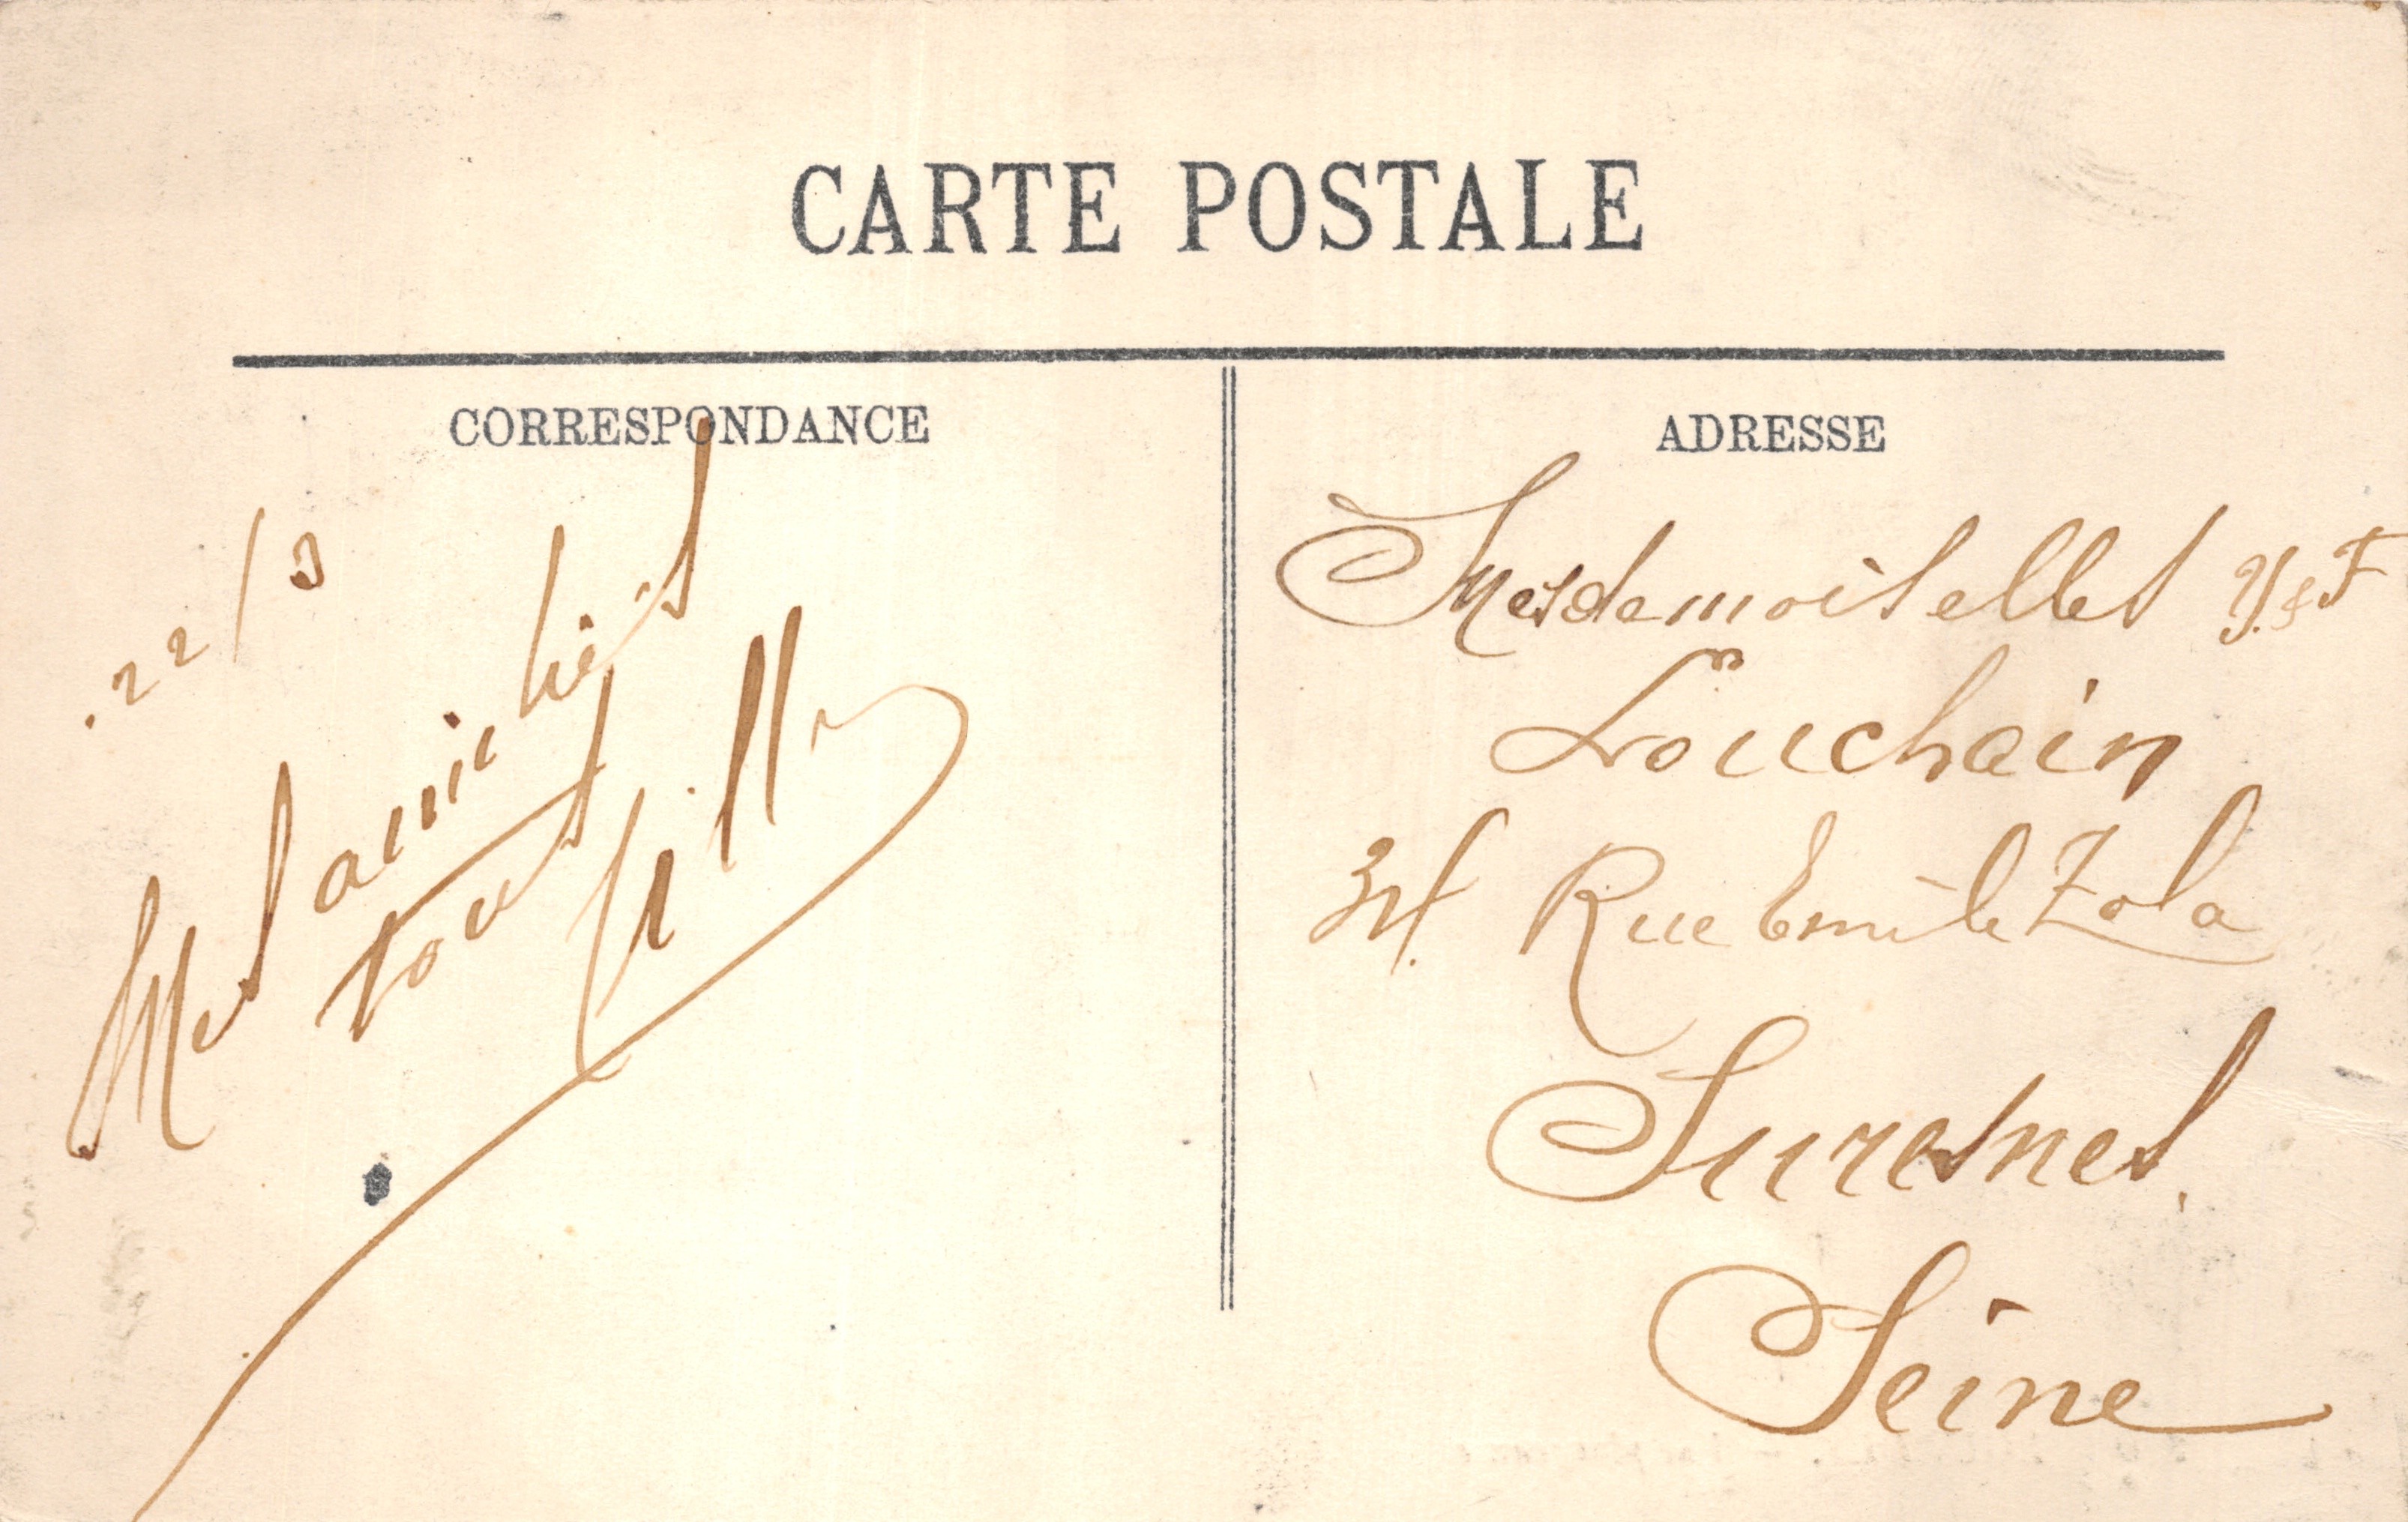 CARTE POSTALE
CORRESPONDANCE
22/3
Mes amitiés
tous
ADRESSE
Mesdemoiselles Y & F
Louchain
34 Rue Emile Zola
Suresnes.
Seine